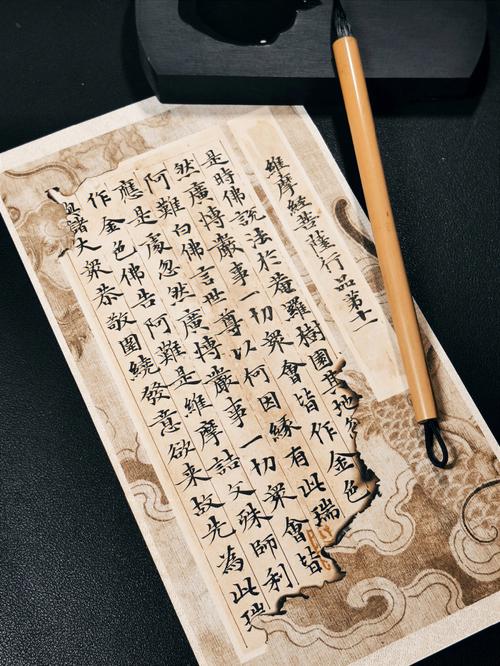 維摩經菩薩行品第十一
是時佛說法於菴羅樹園其地忽
然廣博嚴事一切衆會皆作金色
阿難白佛言世尊以何因緣有此瑞
應是處忽然廣博嚴事一切衆會皆
作金色佛告阿難是維摩詰文殊師利
與諸大衆恭敬圍繞發意欲来故先為此瑞